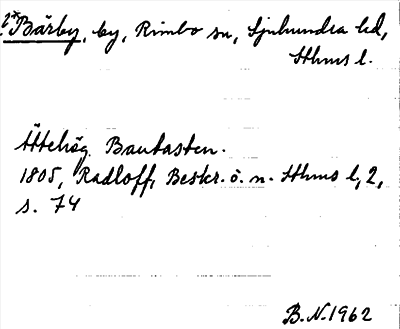 ?*Bärby, by, Rimbo sn, Sjuhundra hd,
Sthms l.
Ättehög. Bautasten.
1805, Radloff, Beskr. ö. n. Sthms l, 2,
s. 74
B.N. 1962